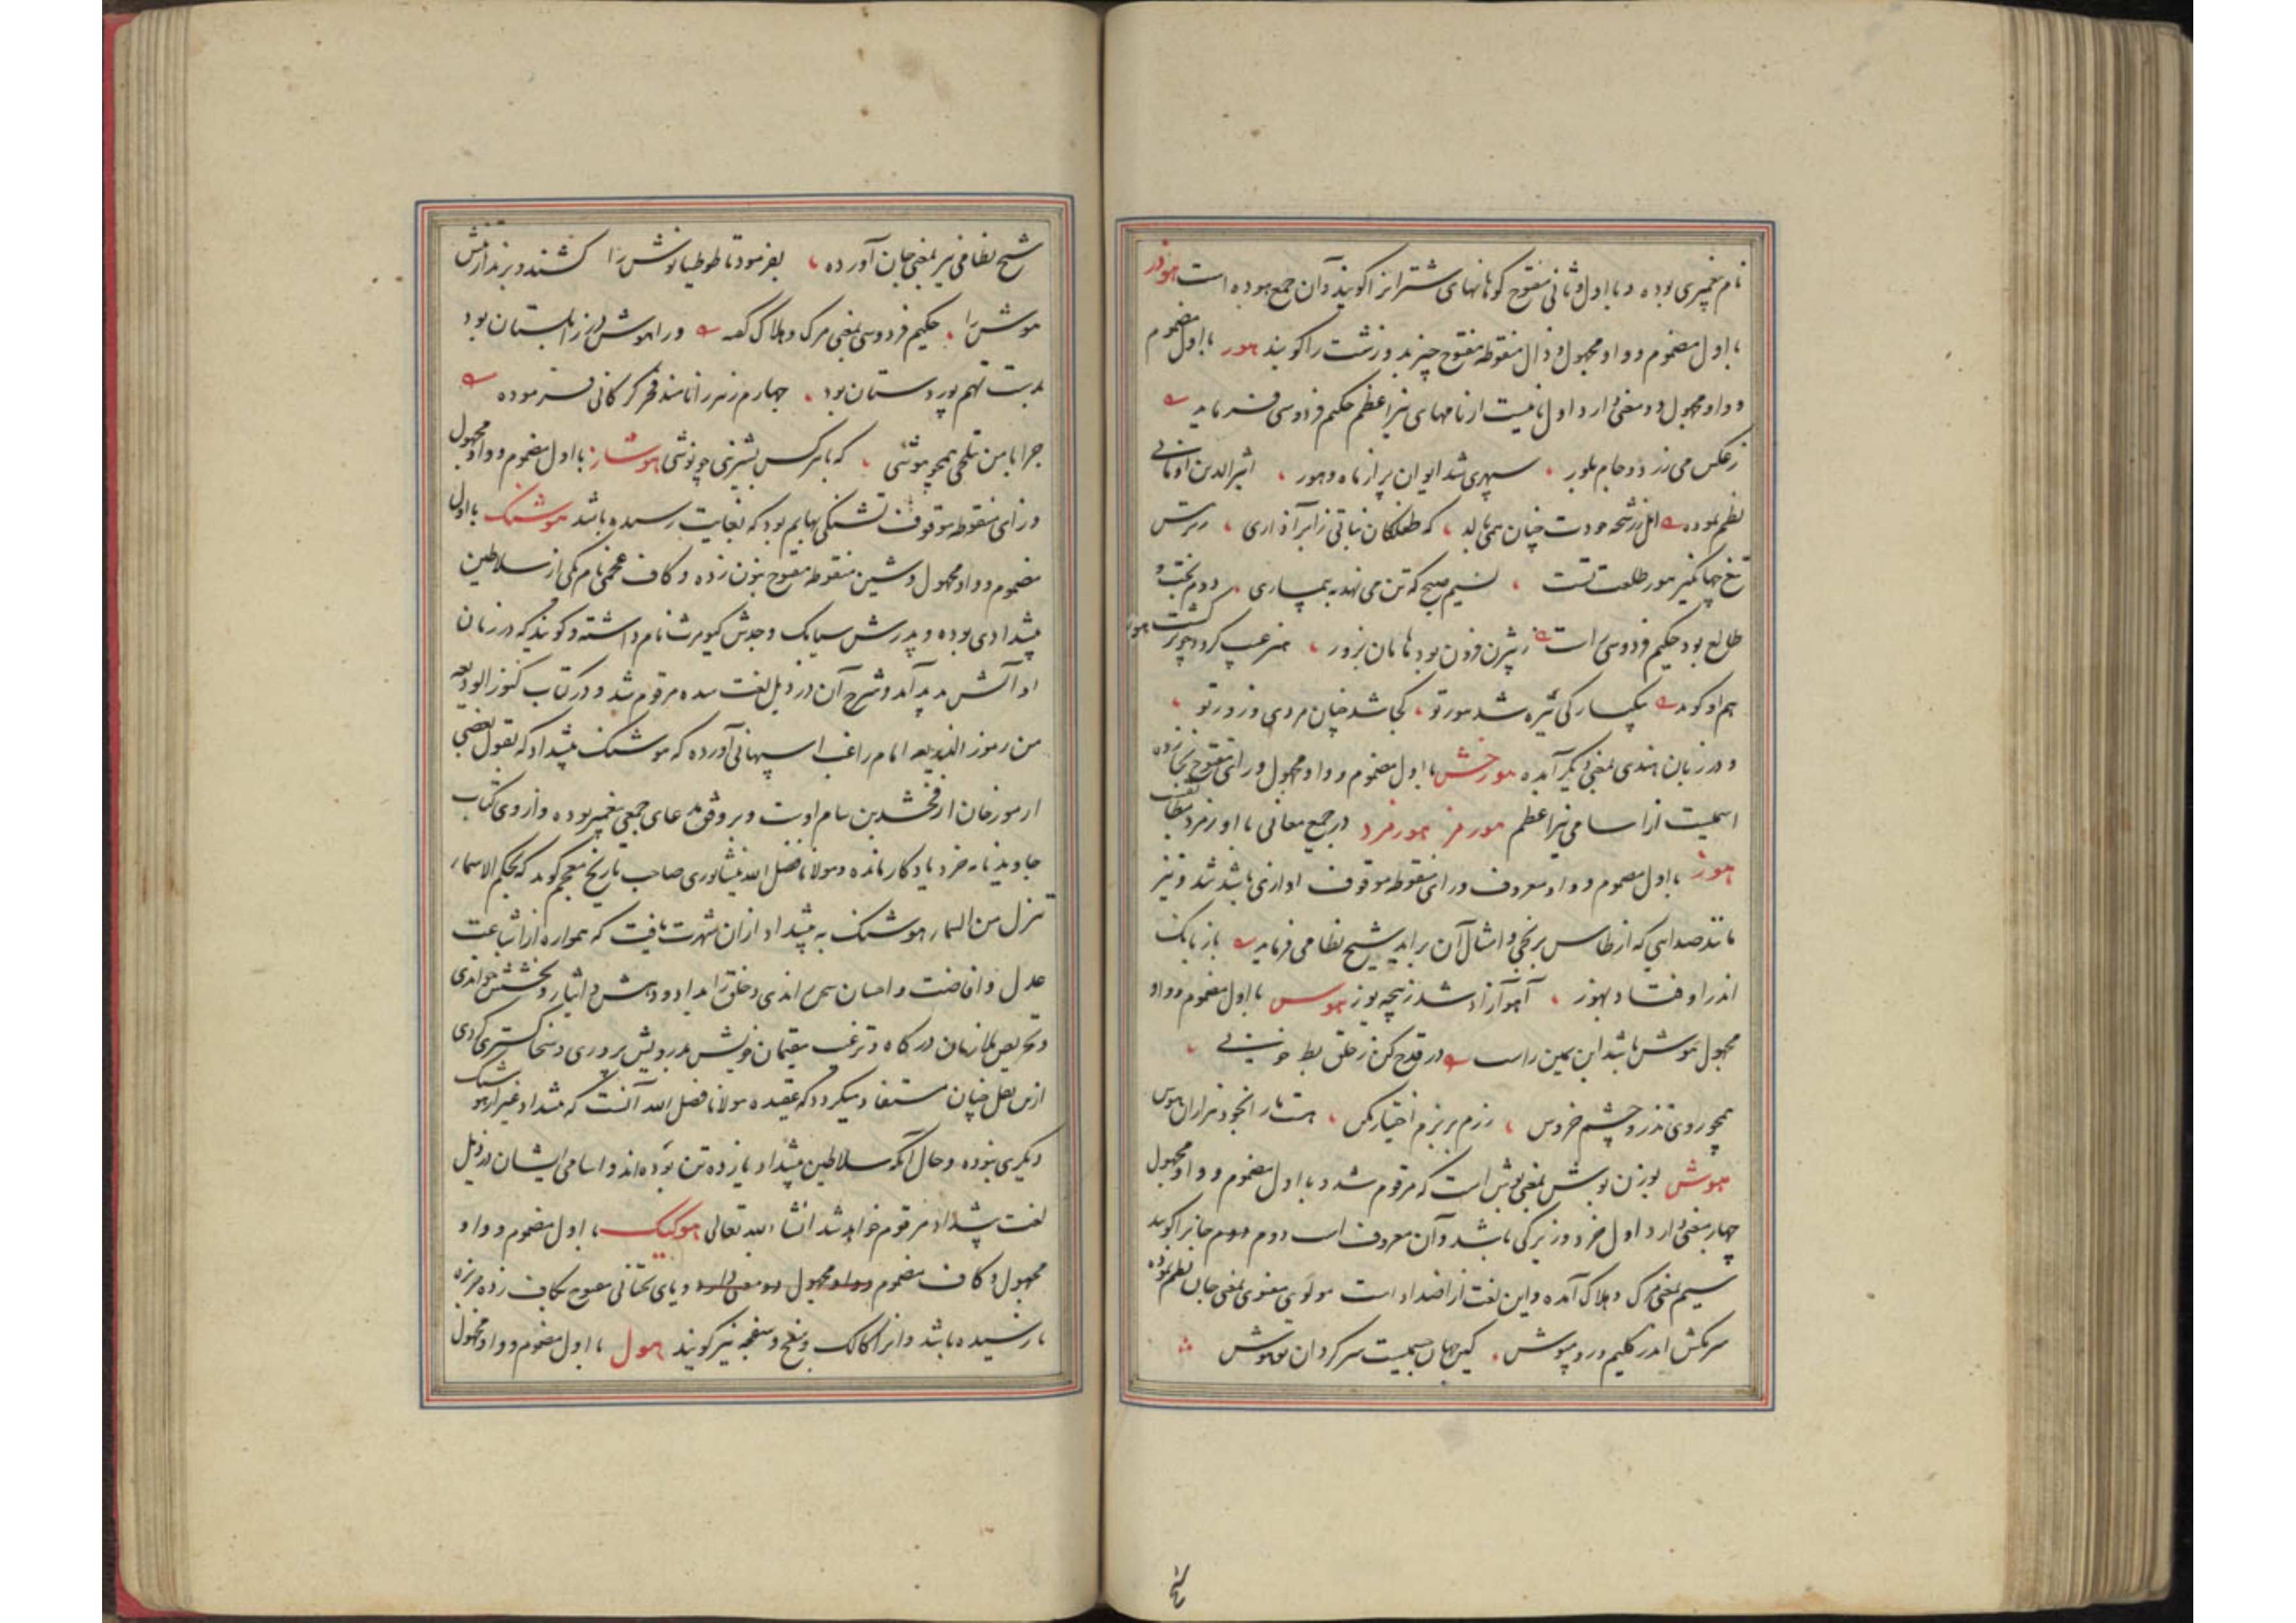 نام پیغمبری بوده و با اول و ثانی مفتوح کوهانهای شترانرا کویند و آن جمع هوده است هوذر
با اول مضموم و واو مجهول و ذال منقوطه مفتوح چیز بد و زشت را کویند هور با اول مضموم
و واو مجهول دو معنی دارد اول نامیست از نامهای نیر اعظم حکیم فردوسی فرماید
ز عکس می زرد و جام بلور سپهری شد ایوان پر از ماه و هور اثیرالدین اومانی
نظم نموده امل ز رشحه جودت چنان همی بالد که طفلکان نباتی ز ابر آذاری
تیغ جهانگیر هور طلعت تست نسیم صبح که تن می نهد به بیماری دوم بخت و
طالع بود حکیم فردوسی راست ز بیژن فزون بود هامان بزور هنر عیب کردد چو بر کشت هور
هم او کوید یکبارکی تیره شد هور تو کجا شد چنان مردی و زور تو
و در زبان هندی بمعنی دیکر آمده هورخش با اول مضموم و واو مجهول و رای مفتوح بخا زده
اسمیست از اسامی نیر اعظم هورمز هورمزد در جمیع معانی با اورمزد مطابقست
هوز با اول مضموم و واو معروف و زای منقوطه موقوف آوازی باشد تند و تیز
مانند صدایی که از طاس برنجی و امثال آن براید شیخ نظامی فرماید باز بانک
اندر اوفتاد بهوز آهو آزاد شد ز پنجه یوز هوس با اول مضموم و واو
مجهول هوش باشد ابن یمین راست در قدح کن ز حلق بط خونی
همچو روی تذرو و چشم خروس رزم بر بزم اختیار مکن هست ما را بخود هزاران هوس
هوش بوزن نوش بمعنی بوش است که مرقوم شد و با اول مضموم و واو مجهول
چهار معنی دارد اول خرد و زیرکی باشد و آن معروف است دوم جانرا کویند
سیم بمعنی مرک و هلاک آمده و این لغت از اضداد است مولوی معنوی بمعنی جان نظم نموده
سر مکش اندر کلیم و رو مپوش کین جهان جسمیست سرکردان تو هوش
شیخ نظامی نیز بمعنی جان آورده بفرمود تا طوطیانوش را کشند و برند از تنش
هوش را حکیم فردوسی بمعنی مرک و هلاک کفته ورا هوش در زابلستان بود
بدست تهم پور دستان بود چهارم زهر را نامند فخر کرکانی فرموده
چرا با من بتلخی همچو هوشی که با هر کس بشیرینی چو نوشی هوشاز با اول مضموم و واو مجهول
و زای منقوطه موقوف تشنکی بهایم بود که بغایت رسیده باشد هوشنک با اول
مضموم و واو مجهول و شین منقوطه مفتوح بنون زده و کاف عجمی نام یکی از سلاطین
پیشدادی بوده و پدرش سیامک و جدش کیومرث نام داشته و کویند که در زمان
او آتش پدید آمد و شرح آن در ذیل لغت سده مرقوم شد و در کتاب کنوز الودیعه
من رموز الذریعه امام راغب اسپهانی آورده که هوشنک پیشداد که بقول بعضی
از مورخان ارفخشد بن سام اوست و بر وفق مدعای جمعی پیغمبر بوده و از وی کتاب
جاویدنامه خرد یادکار مانده و مولانا فضل الله نیشابوری صاحب تاریخ معجم کوید که بحکم الاسماء
تنزل من السماء هوشنک به پیشداد ازان شهرت یافت که همواره از اشاعت
عدل و افاضت و احسان سمر راندی و خلق را بداد و دهش و ایثار و بخشش خواندی
و تحریص ملازمان درکاه و ترغیب مقیمان خویش بدرویش پروری و سخاکستری کردی
ازین نقل چنان مستفاد میکردد که عقیده مولانا فضل الله آنست که پیشداد غیر از هوشنک
دیکری نبوده و حال آنکه سلاطین پیشداد یازده تن بوده اند و اسامی ایشان در ذیل
لغت پیشداد مرقوم خواهد شد انشاء الله تعالی هوکیک با اول مضموم و واو
مجهول و کاف مضموم و واو مجهول دو معنی دارد و یای تحتانی مفتوح بکاف زده خربزه
نارسیده باشد و انرا کالک و سفچه نیز کویند هول با اول مضموم و واو مجهول